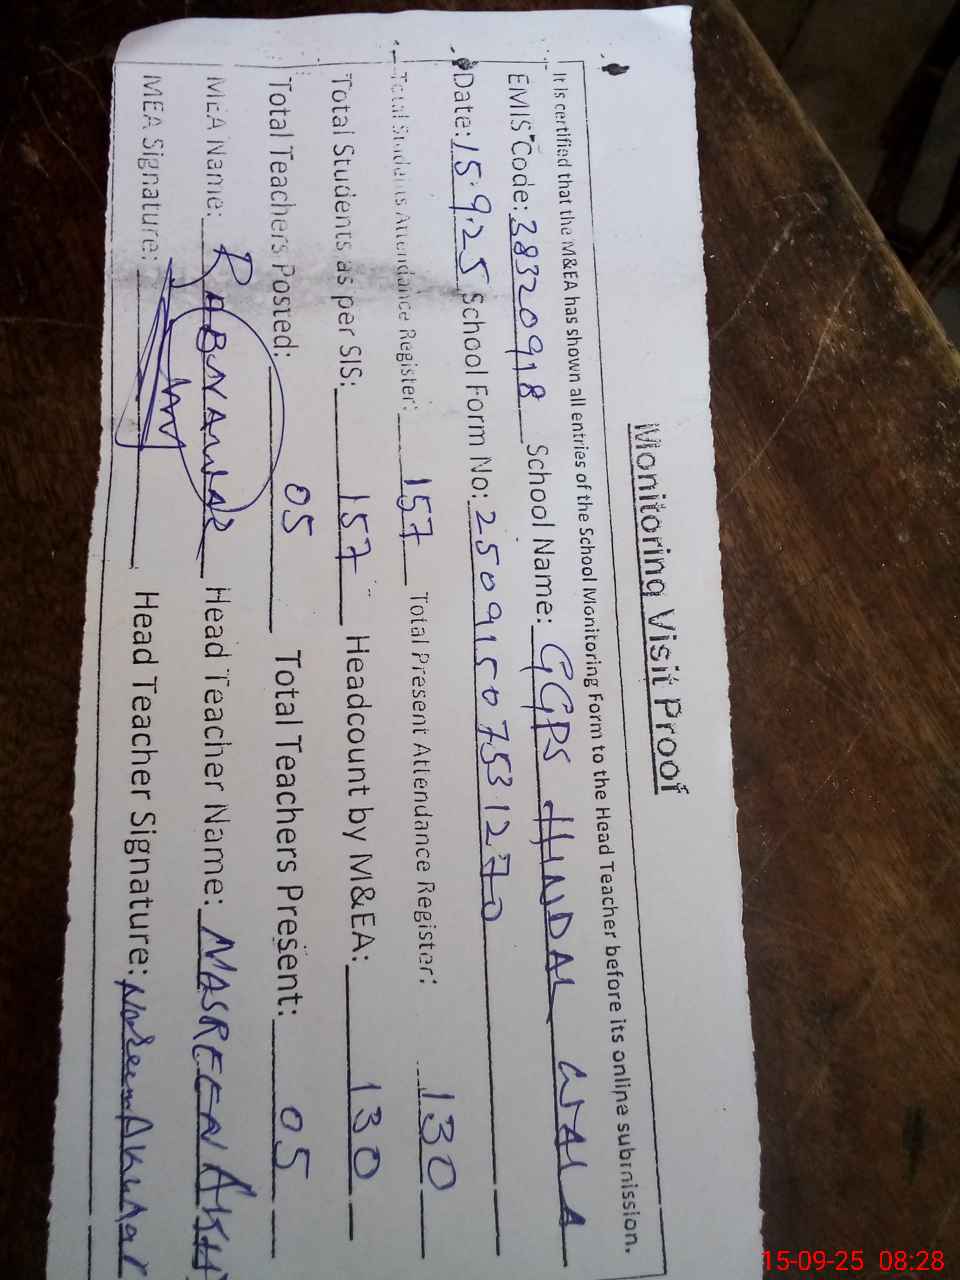 Monitoring Visit Proof
It is certified that the M&EA has shown all entries of the School Monitoring Form to the Head Teacher before its online submission.
EMIS Code: 38320918 School Name: GGPS HINDAL WALA
Date: 15.9.25 School Form No: 25091507531270
Total Students Attendance Register: 157 Total Present Attendance Register: 130
Total Students as per SIS: 157 Headcount by M&EA: 130
Total Teachers Posted: 05 Total Teachers Present: 05
MEA Name: RAB NAWAR Head Teacher Name: NASREEN AKH
MEA Signature: Head Teacher Signature:
15-09-25 08:28